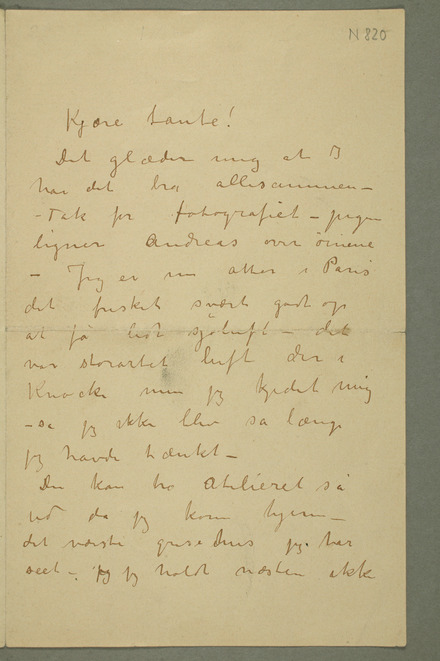 N 820
Kjære tante!
Det glæder mig at I
har det bra allesammen –
– Tak for fotografiet – pigen
ligner Andreas over öinene
– Jeg er nu atter i Paris
det frisket svært godt op
at få lidt sjøluft – det
var storartet luft der i
Knocke men jeg kjedet mig
– så jeg ikke blev så længe
jeg havde tænkt –
Du kan tro Atelieret så
ud da jeg kom hjem –
det værste grisehus jeg har
seet – jeg holdt næsten ikke